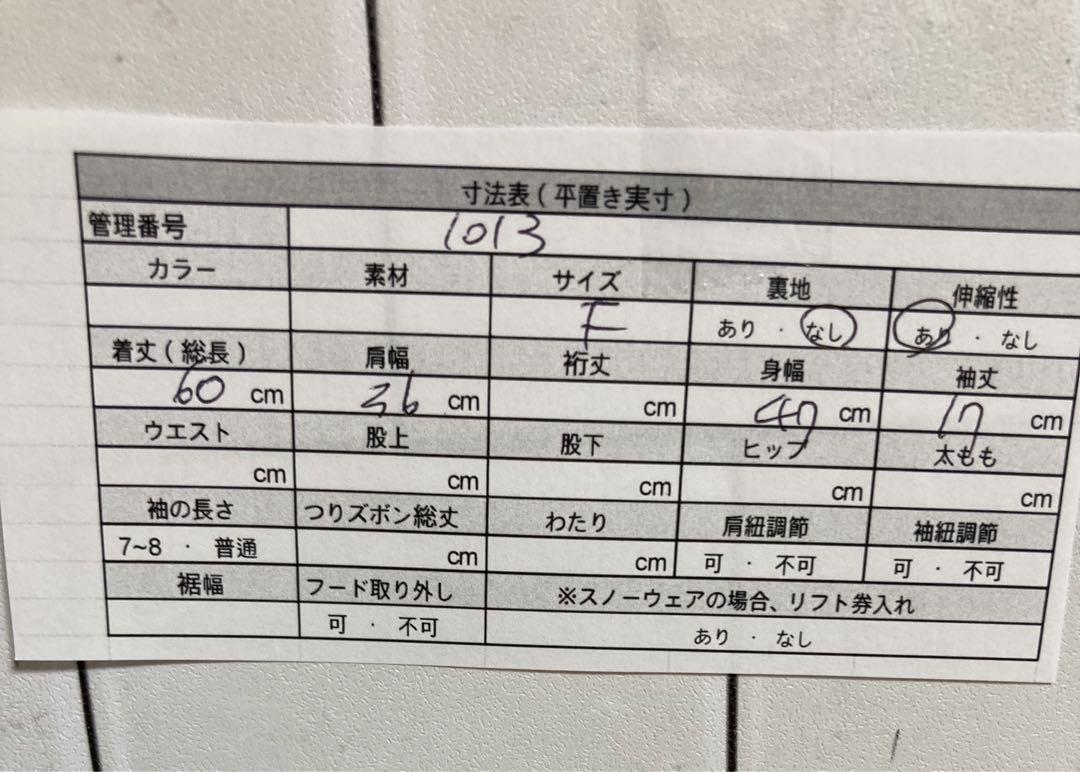 寸法表(平置き実寸)
管理番号 1013
カラー 素材 サイズ 裏地 伸縮性
F あり ・ なし あり ・ なし
着丈(総長) 肩幅 裄丈 身幅 袖丈
60 cm 36 cm cm 47 cm 17 cm
ウエスト 股上 股下 ヒップ 太もも
cm cm cm cm cm
袖の長さ つりズボン総丈 わたり 肩紐調節 袖紐調節
7~8 ・ 普通 cm cm 可 ・ 不可 可 ・ 不可
裾幅 フード取り外し ※スノーウェアの場合、リフト券入れ
可 ・ 不可 あり ・ なし